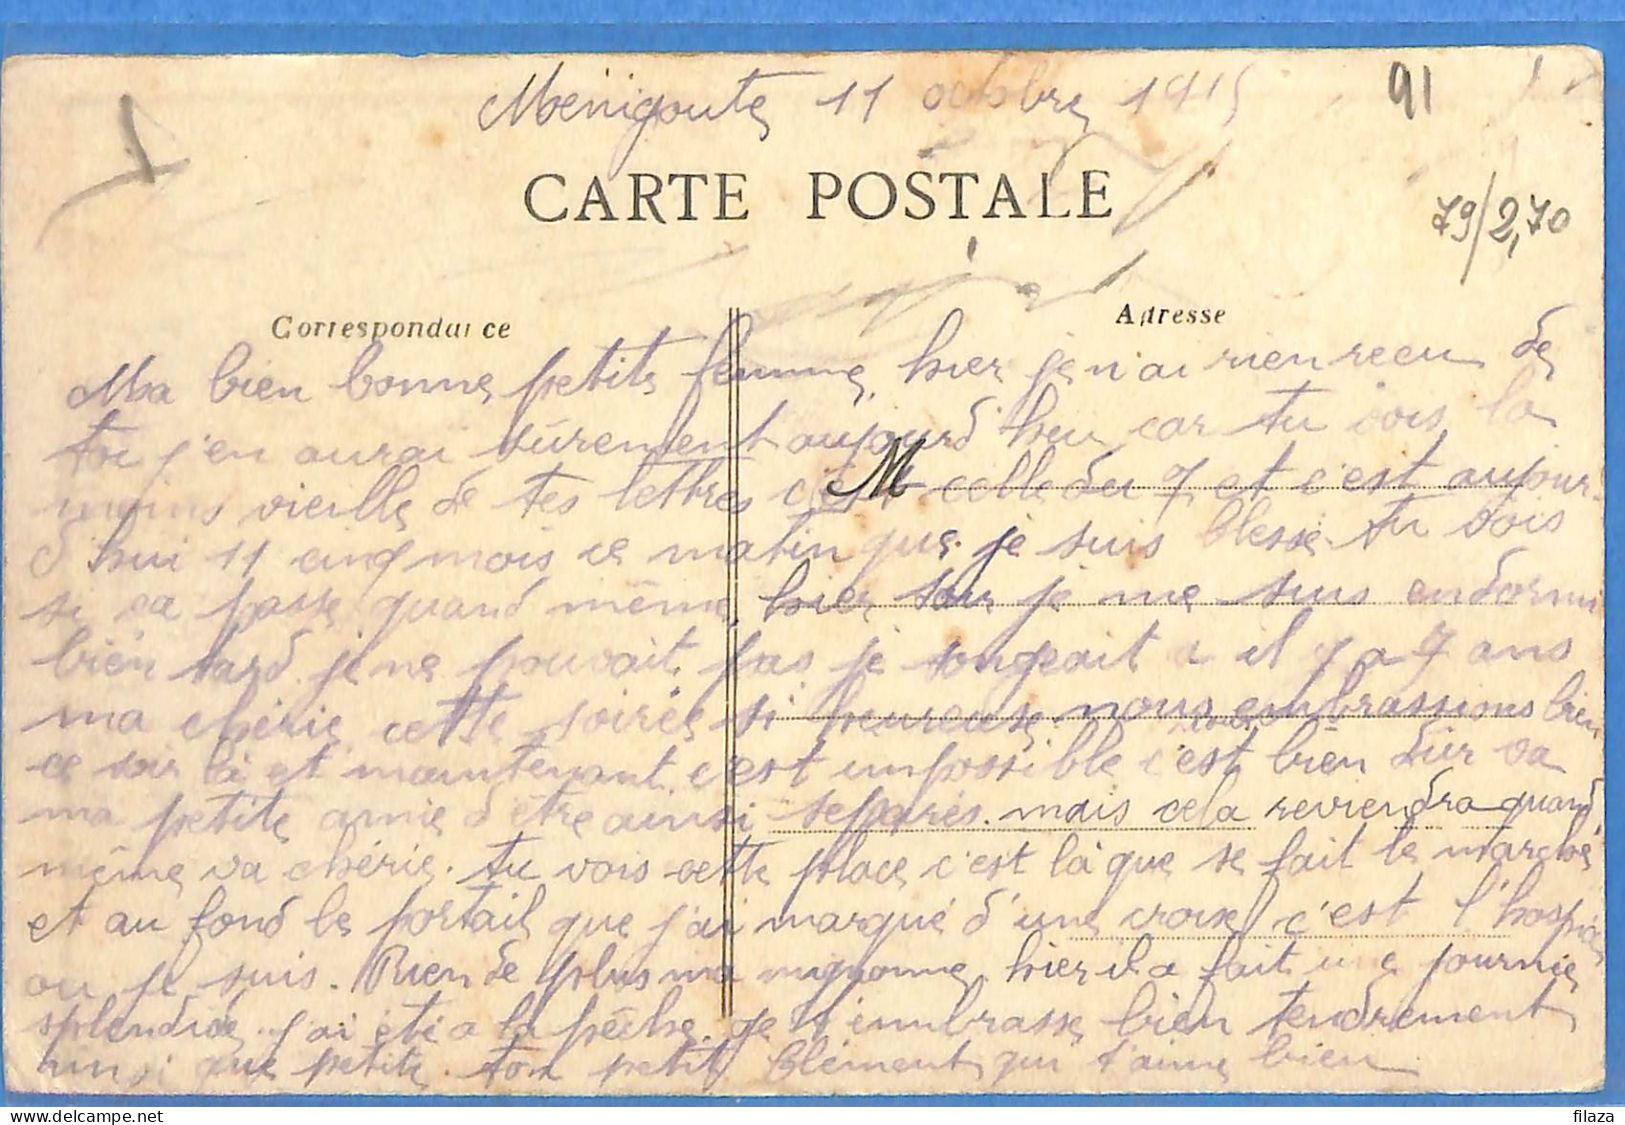 Ménigoute 11 octobre 1915
91
CARTE POSTALE
79/2,70
Correspondance
Adresse
Ma bien bonne petite femme, hier je n'ai rien recu de
toi j'en aurai sûrement aujourd'hui car tu vois la
moins vieille de tes lettres c'est celle du 7 et c'est aujour
M
d'hui 11 cinq mois ce matin que je suis blessé. tu vois
si ca passe quand même, hier soir je me suis endormi
bien tard je ne pouvait pas je songeait a il y a 7 ans
ma chérie cette soirée si heureuse nous embrassions bien
ce soir là et maintenant c'est impossible c'est bien dur va
ma petite amie d'être ainsi séparés. mais cela reviendra quand
même va chérie. tu vois cette place c'est là que se fait le marché
et au fond le portail que j'ai marqué d'une croix c'est l'hospice
ou je suis. Rien de plus ma mignonne, hier il a fait une journée
splendide. j'ai été a la pêche. je t'embrasse bien tendrement
ainsi que petite. ton petit Clément qui t'aime bien
filaza